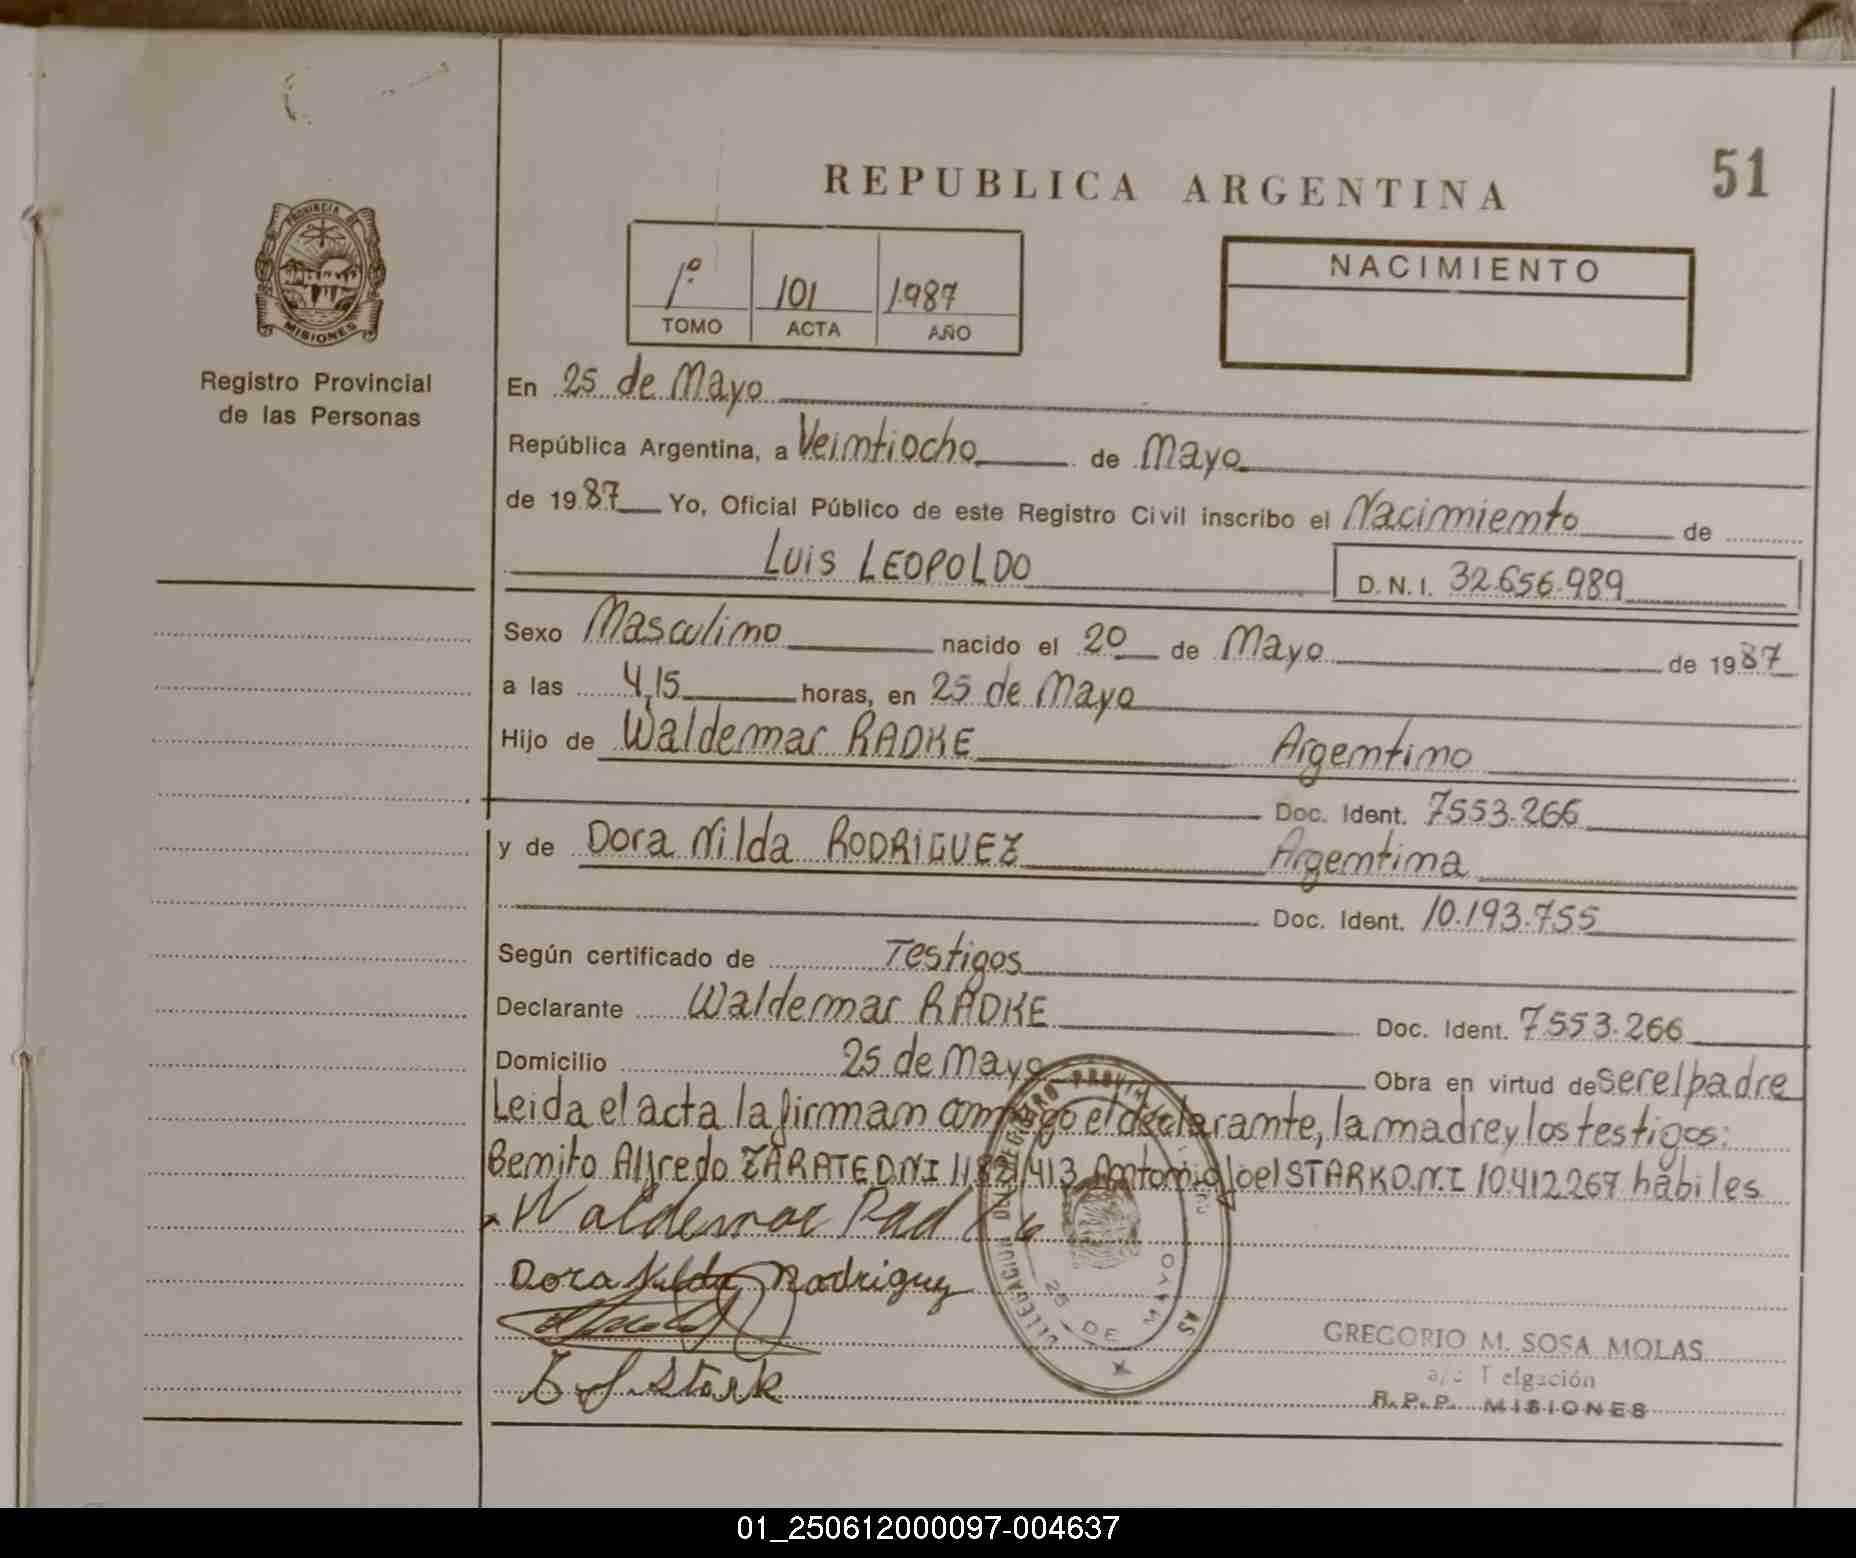 51
REPUBLICA ARGENTINA
PROVINCIA DE
MISIONES
Registro Provincial
de las Personas
1º 101 1987
TOMO ACTA AÑO
NACIMIENTO
En 25 de Mayo
República Argentina, a Veintiocho de Mayo
de 1987 Yo, Oficial Público de este Registro Civil inscribo el Nacimiento de
LUIS LEOPOLDO D.N.I. 32.656.989
Sexo Masculino nacido el 20 de Mayo de 1987
a las 4,15 horas, en 25 de Mayo
Hijo de Waldemar RADKE Argentino
Doc. Ident. 7553.266
y de Dora Nilda RODRIGUEZ Argentina
Doc. Ident. 10.193.755
Según certificado de Testigos
Declarante Waldemar RADKE Doc. Ident. 7.553.266
Domicilio 25 de Mayo Obra en virtud de ser el padre
Leida el acta la firman conmigo el declarante, la madre y los testigos:
Benito Alfredo ZARATE DNI 11.821.413 Antonio Joel STARK D.N.I 10.412.267 habiles
Waldemar Radke
Dora Nilda Rodriguez
Stark
25 DE MAYO
GREGORIO M. SOSA MOLAS
a/c Delgación
R.P.P. MISIONES
01_250612000097-004637